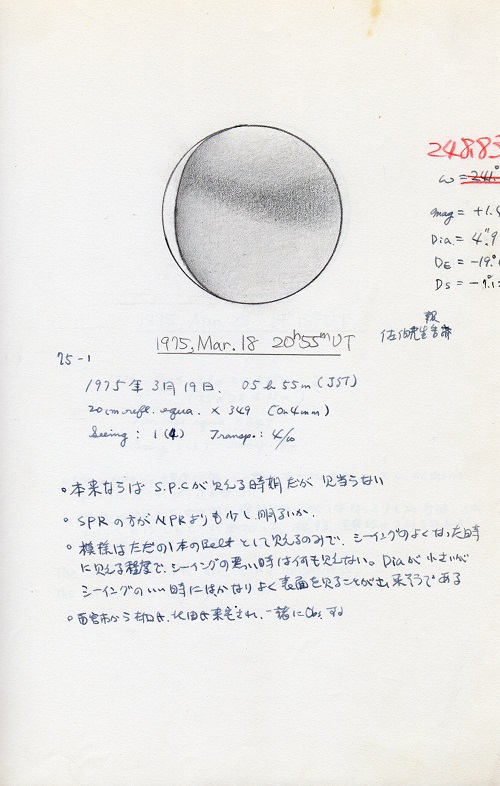 248.83
ω = 241.°
mag = +1.
Dia. = 4."9
DE = -19.°
Ds = -9.°1
報
佐伯先生
1975, Mar. 18 20h55m UT
75-1
1975年3月19日. 05h55m (JST)
20cm refl. equa. × 349 (Or.4mm)
Seeing: 1 (4) Transp.: 4/10
。本来ならば S.P.C が見える時期だが 見当らない
。SPRの方がNPRよりも少し明るいか.
。模様はただの1本のBeltとして見えるのみで、シーイングのよくなった時
に見える程度で、シーイングの悪い時は何も見えない。Diaが小さいが
シーイングのいい時にはかなりよく表面を見ることが出来そうである
。西宮市から 氏. 池田氏来宅され、一緒にObs.する